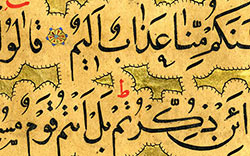 منكم منا عذاب اليم قالوا
ائن ذكرتم بل انتم قوم مسر